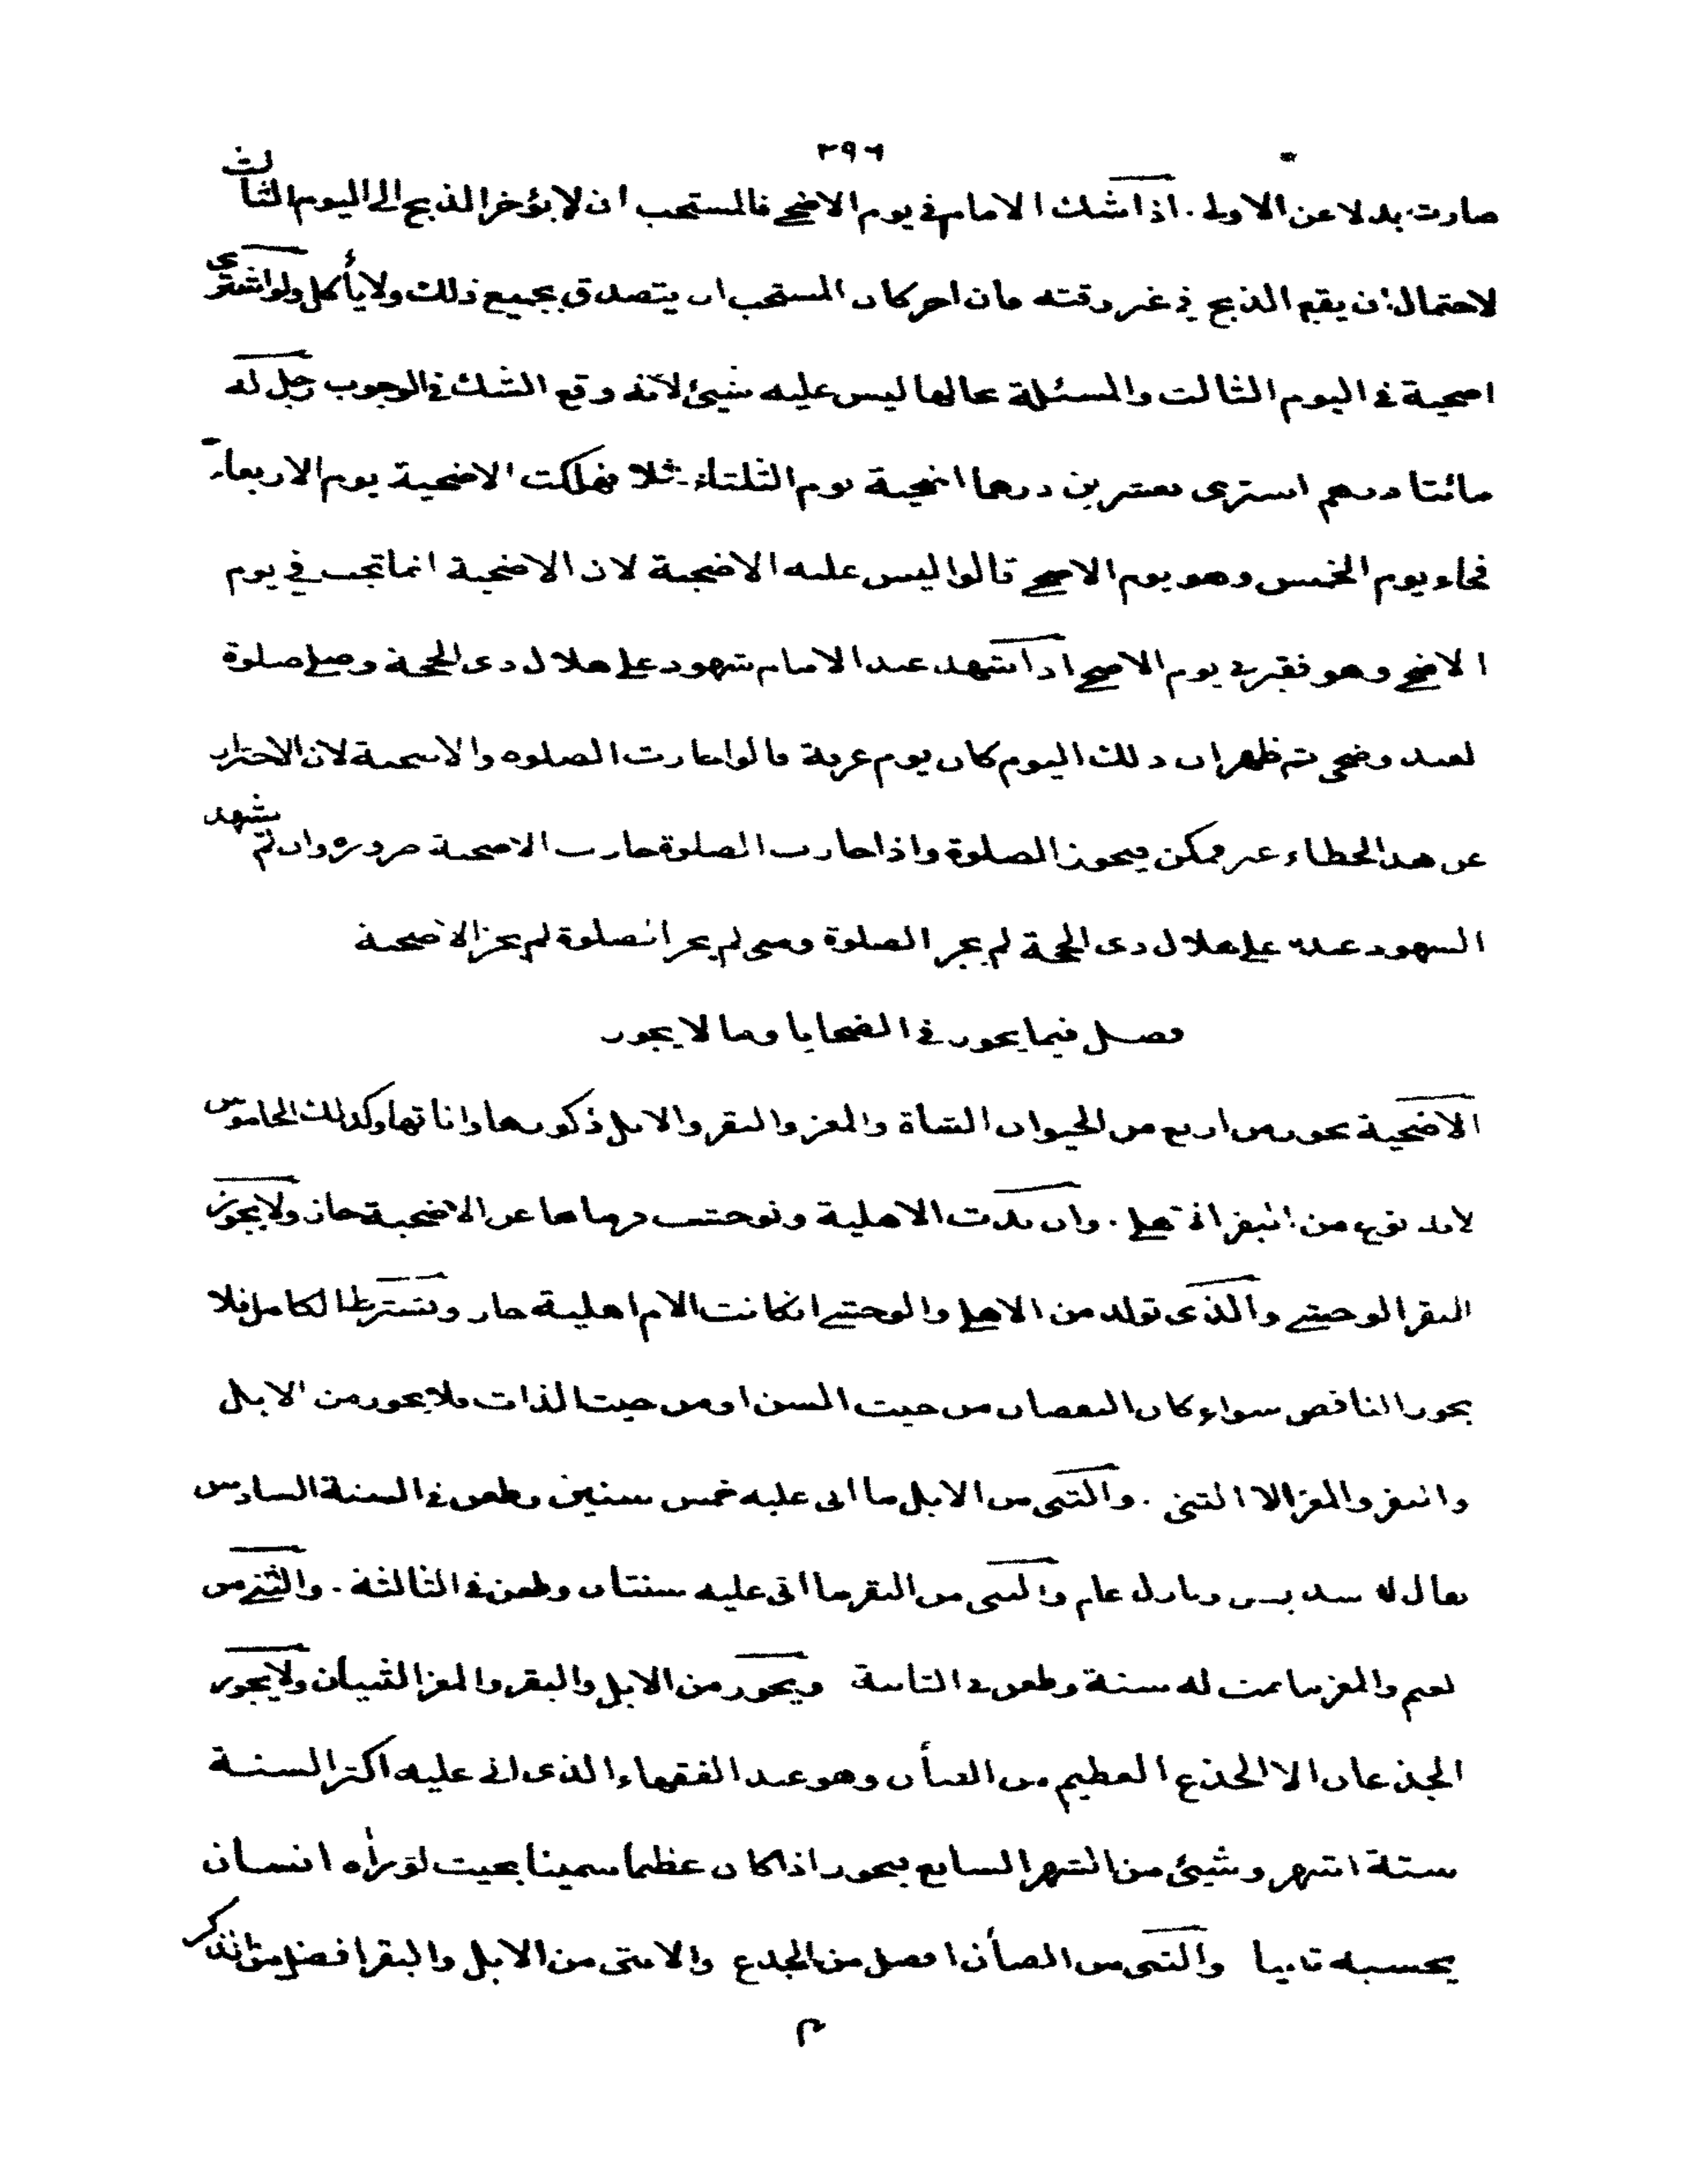 ٣٩٦
صارت بدلا عن الاولى . اذا شك الامام في يوم الاضحى فالمستحب ان لا يؤخر الذبح الى اليوم الثالث
لاحتمال ان يقع الذبح في غير وقته فان اخر كان المستحب ان يتصدق بجميع ذلك ولا يأكل ولو اشترى
اضحية في اليوم الثالث والمسئلة بحالها ليس عليه شيئ لانه وقع الشك في الوجوب رجل له
مائتا درهم اشترى بعشرين درهما اضحية يوم الثلثاء مثلا فهلكت الاضحية يوم الاربعاء
فجاء يوم الخميس وهو يوم الاضحى قالوا ليس عليه الاضحية لان الاضحية انما تجب في يوم
الاضحى وهو فقير في يوم الاضحى اذا شهد عند الامام شهود على هلال ذى الحجة وصلى صلوة
لعيد وضحى ثم ظهر ان ذلك اليوم كان يوم عرفة قالوا جازت الصلوة والاضحية لان الاحتراز
عن هذا الخطاء غير ممكن فيجوز الصلوة واذا جازت الصلوة جازت الاضحية ضرورة وان لم يشهد
الشهود عنده على هلال ذى الحجة لم يجز الصلوة ومتى لم يجز الصلوة لم يجز الاضحية
فصل فيما يجوز في الضحايا وما لا يجوز
الاضحية يجوز من اربع من الحيوان الشاة والمعز والبقر والابل ذكورها واناثها وكذلك الجاموس
لانه نوع من البقر الاهلي . وان ندت الاهلية وتوحشت فرماها عن الاضحية جاز ولا يجوز
البقر الوحشي والذى تولد من الاهلي والوحشي انكانت الام اهلية جاز ويشترط الكامل فلا
يجوز الناقص سواء كان النقصان من حيث السن او من حيث الذات فلا يجوز من الابل
والبقر والمعز الا الثني . والثنى من الابل ما اتى عليه خمس سنين وطعن في السنة السادس
يقال له سديس وبازل عام والثنى من البقر ما اتى عليه سنتان وطعن في الثالثة . والثني من
لغنم والمعز ما تمت له سنة وطعن في الثانية ويجوز من الابل والبقر والمعز الثنيان ولا يجوز
الجذعان الا الجذع العظيم من الضأن وهو عند الفقهاء الذى اتى عليه اكثر السنة
ستة اشهر وشيئ من الشهر السابع يجوز اذا كان عظيما سمينا بحيث لو رأه انسان
يحسبه ثانيا والثنى من الضأن افضل من الجذع والانثى من الابل والبقر افضل من الذكر
م